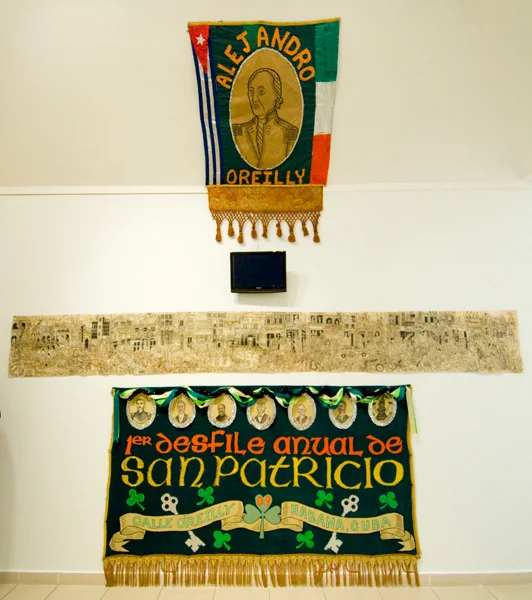 ALEJANDRO
OREILLY
1ER DESFILE ANUAL DE
SAN PATRICIO
CALLE OREILLY
HABANA, CUBA